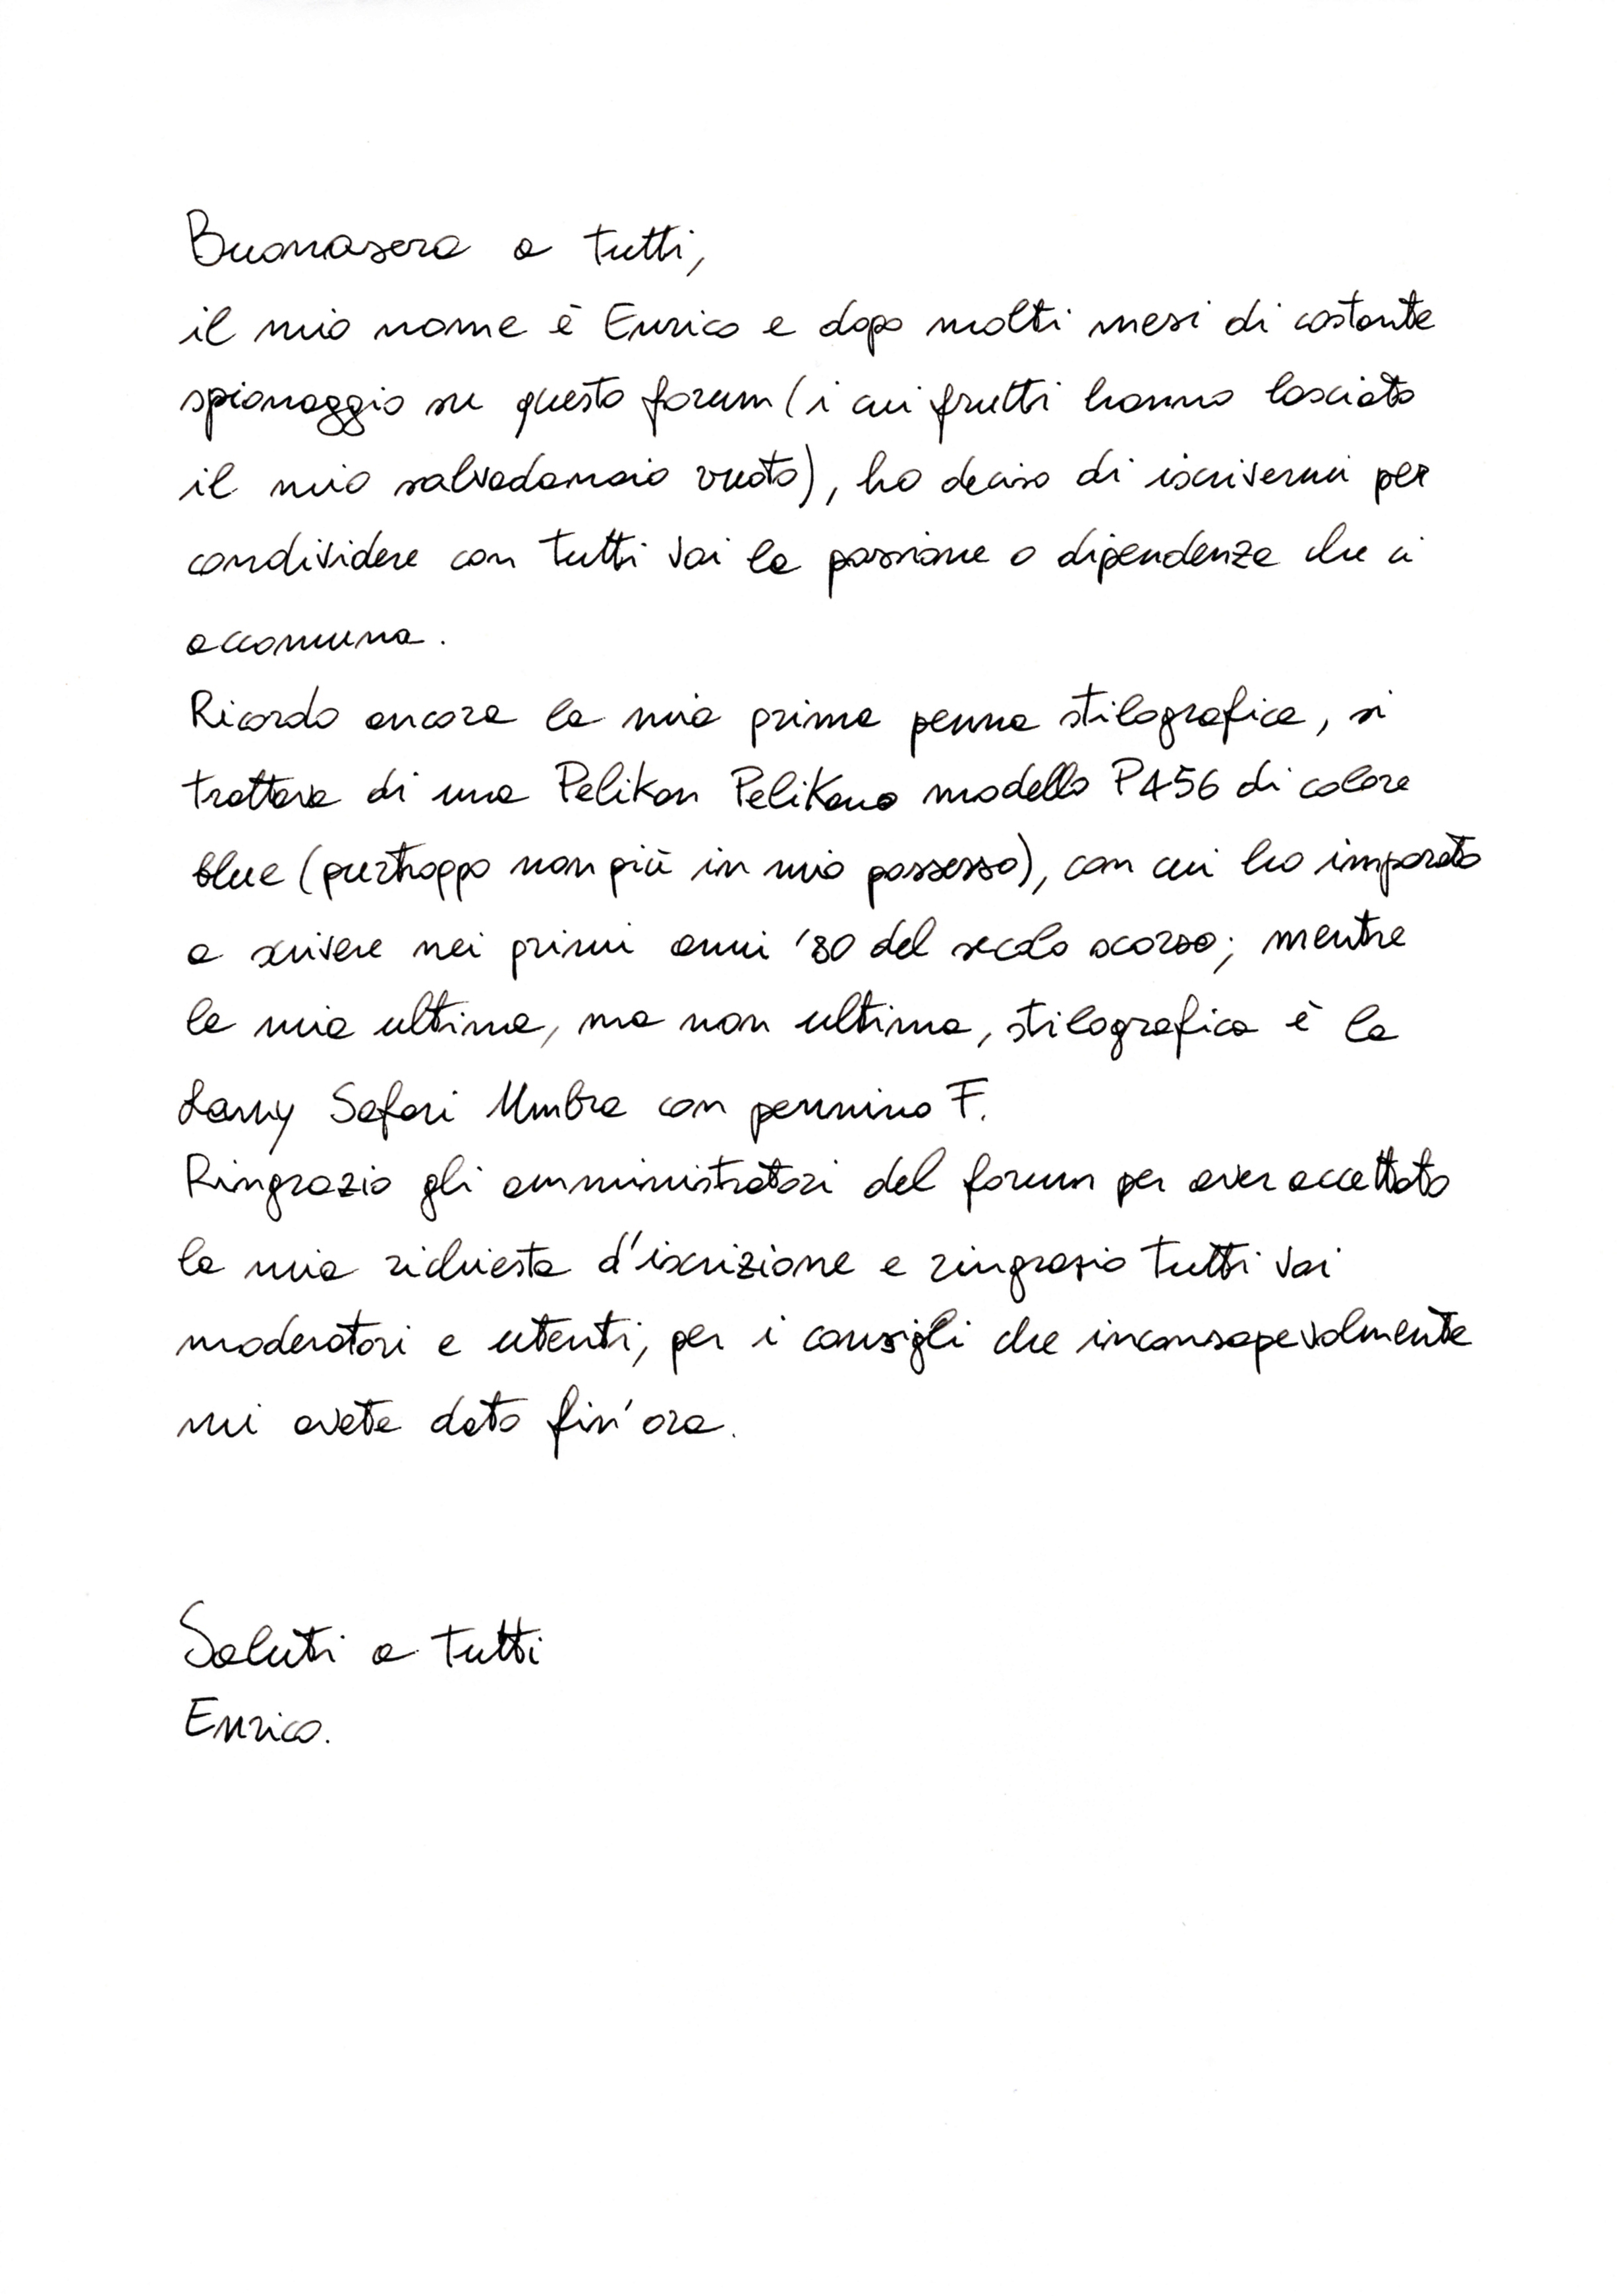 Buonasera a tutti,
il mio nome è Enrico e dopo molti mesi di costante
spionaggio su questo forum (i cui frutti hanno lasciato
il mio salvadanaio vuoto), ho deciso di iscrivermi per
condividere con tutti voi la passione o dipendenza che ci
accomuna.
Ricordo ancora la mia prima penna stilografica, si
trattava di una Pelikan Pelikano modello P456 di colore
blue (purtroppo non più in mio possesso), con cui ho imparato
a scrivere nei primi anni '80 del secolo scorso; mentre
la mia ultima, ma non ultima, stilografica è la
Lamy Safari Umbra con pennino F.
Ringrazio gli amministratori del forum per aver accettato
la mia richiesta d'iscrizione e ringrazio tutti voi
moderatori e utenti, per i consigli che inconsapevolmente
mi avete dato fin'ora.
Saluti a tutti
Enrico.